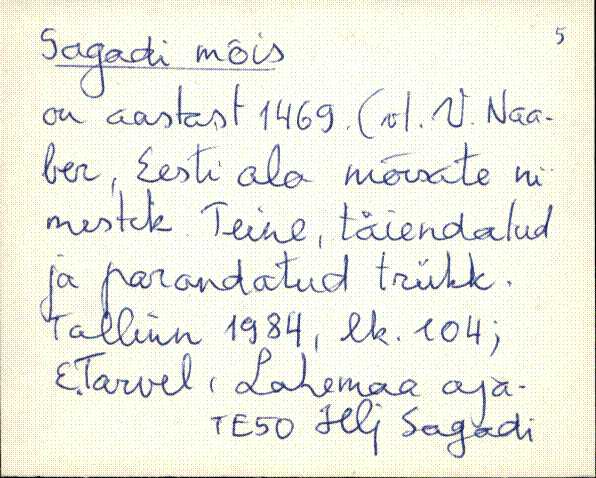 5
Sagadi mõis
on aastast 1469. (vt. V. Naa-
ber, Eesti ala mõisate ni-
mestik. Teine, täiendatud
ja parandatud trükk.
Tallinn 1984, lk. 104;
E. Tarvel, Lahemaa aja-
TE50 Hlj Sagadi